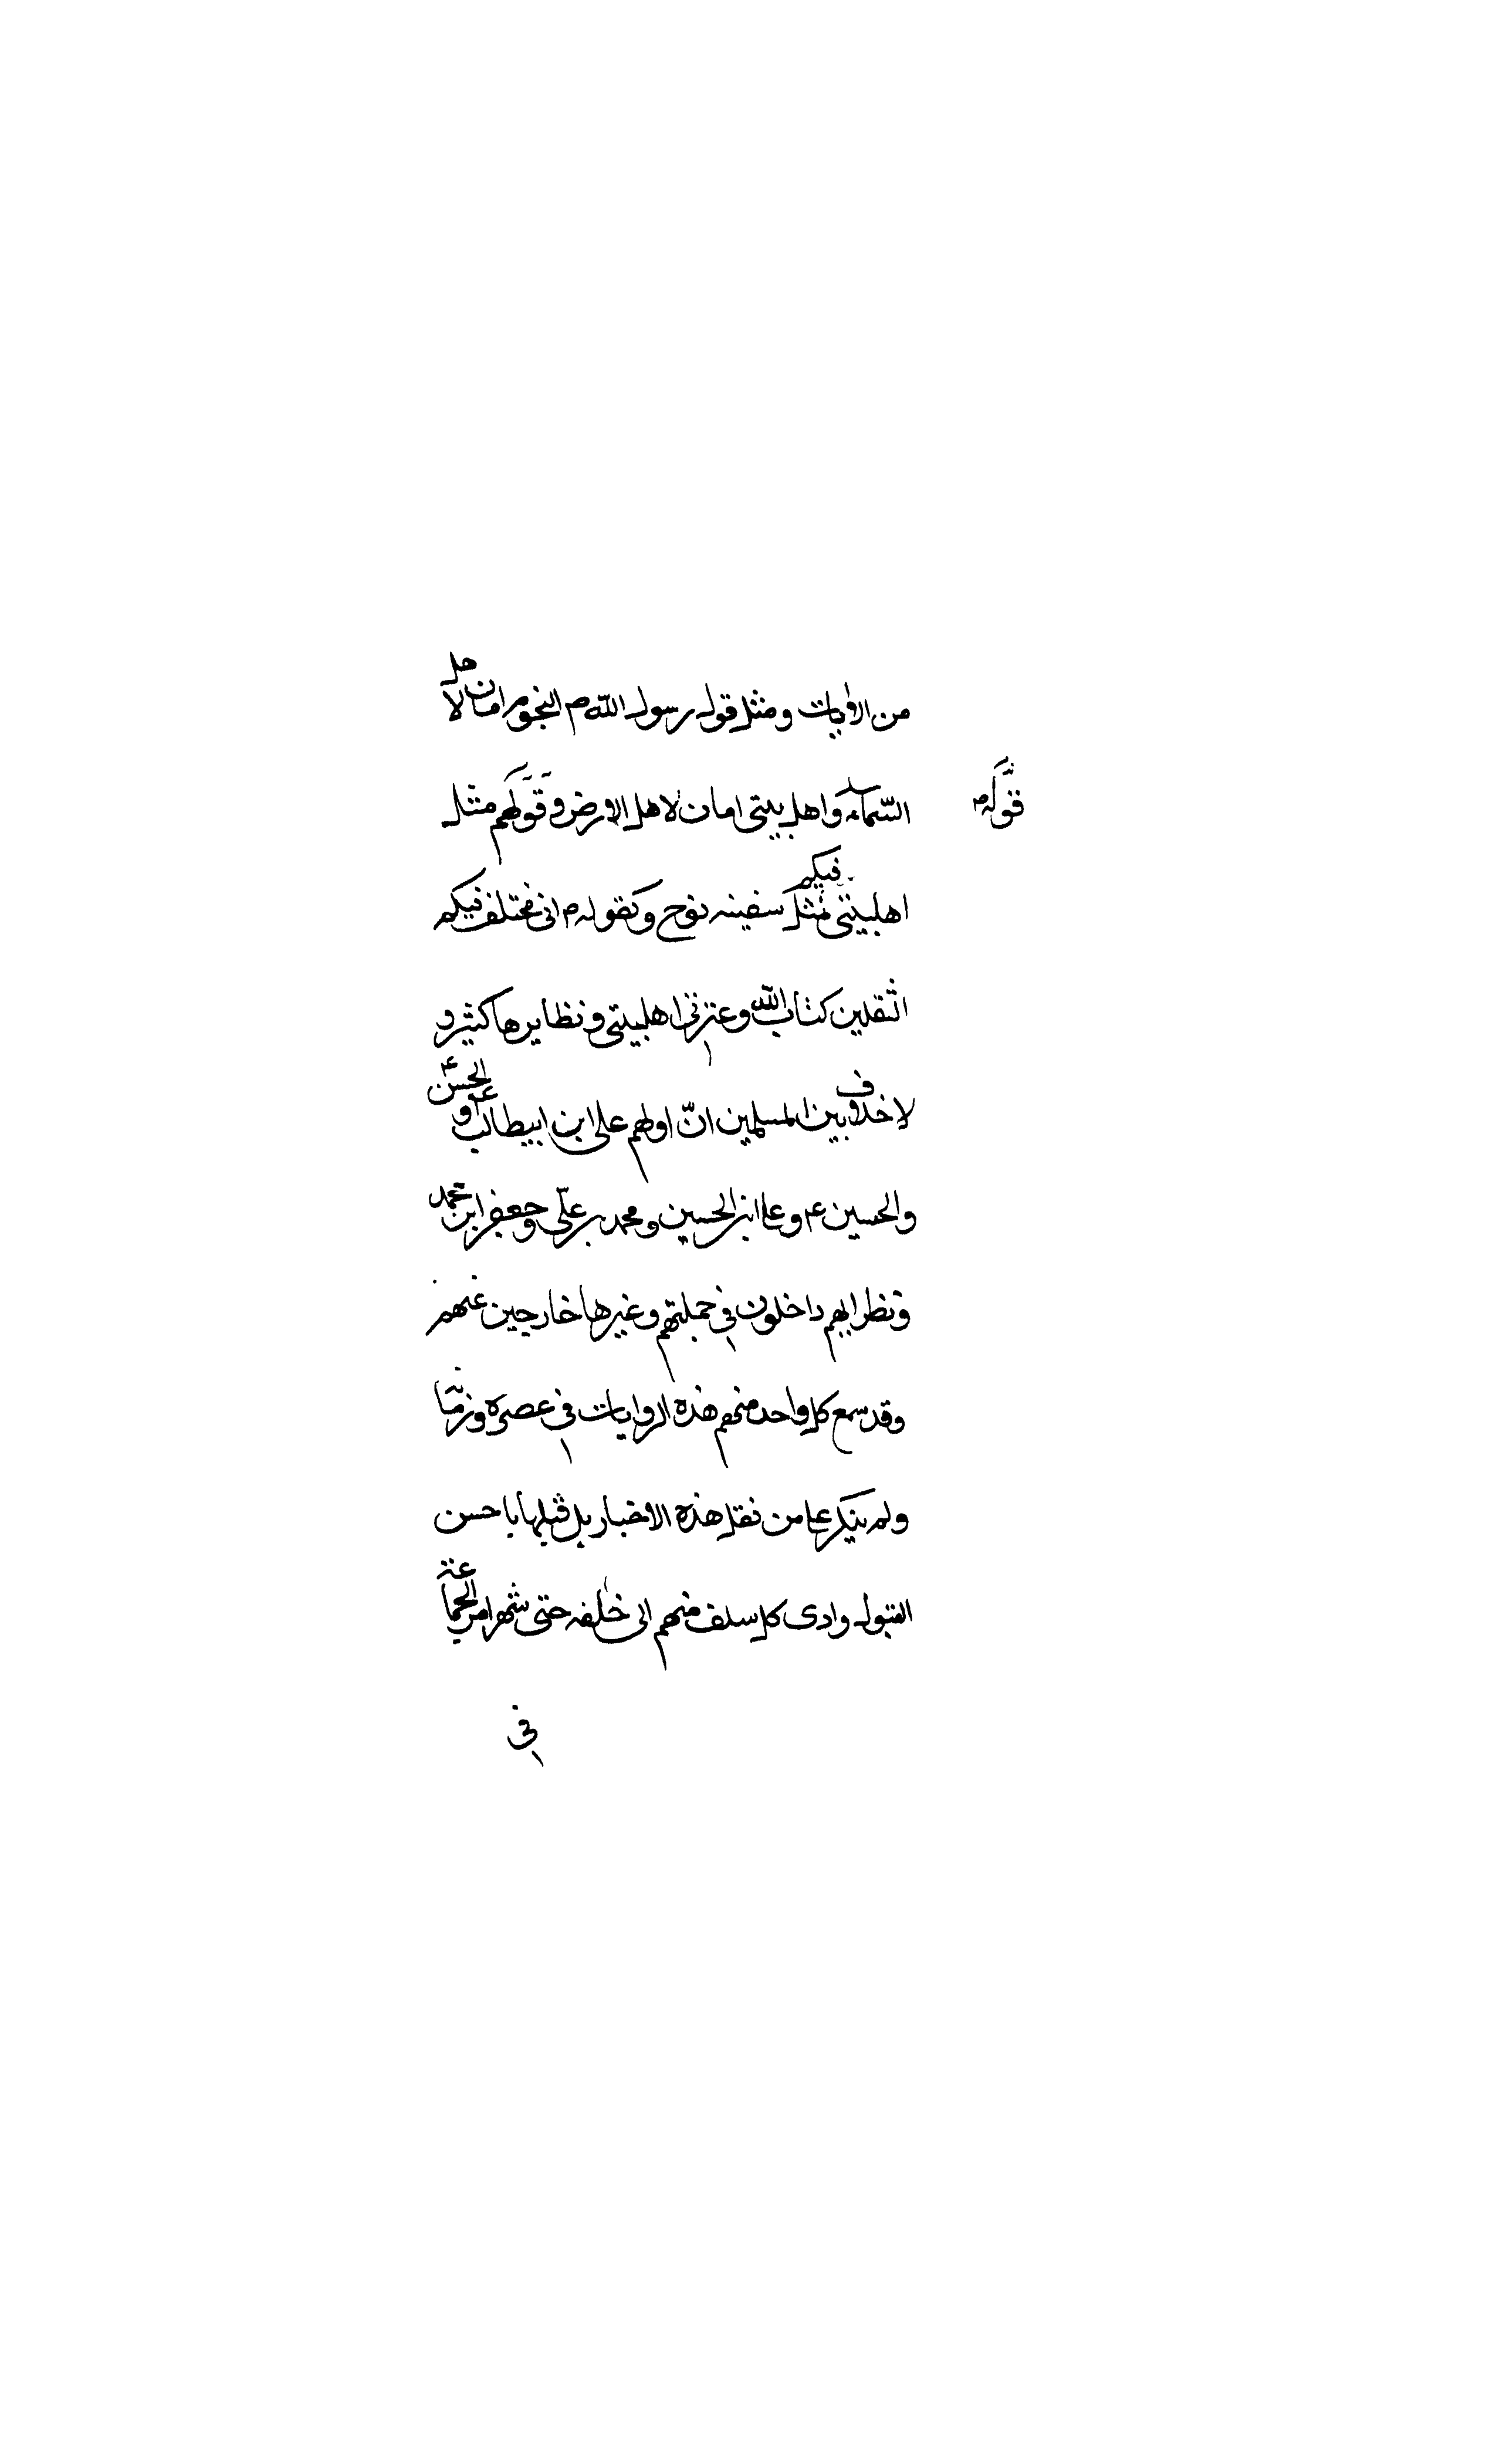 من الروايات ومثل قول رسول الله ص النجوم امان لاهل
السماء واهل بيتى امان لاهل الارض وقولهم مثل
قوله ص
اهلبيتى فيكم مثل سفينه نوح وكقوله ص انى مختلف فيكم
الثقلين كتاب الله وعترتى اهلبيتى ونظايرها كثير و
لاخلاف بين المسلمين انّ اولهم على ابن ابيطالب ع و الحسن ع
والحسين ع وعلى ابن الحسين ومحمد بن علّى وجعفر ابن محمد
ونظرايهم داخلون فى جملتهم وغيرها خارجين عنهم
وقد سمع كل واحد منهم هذه الروايات فى عصره و
ولم ينكر على من نقل هذه الاخبار بل قبلها باحسن
القبول وادى كل سلف منهم الى خلفه حتى شهر امر الجماعة
فى